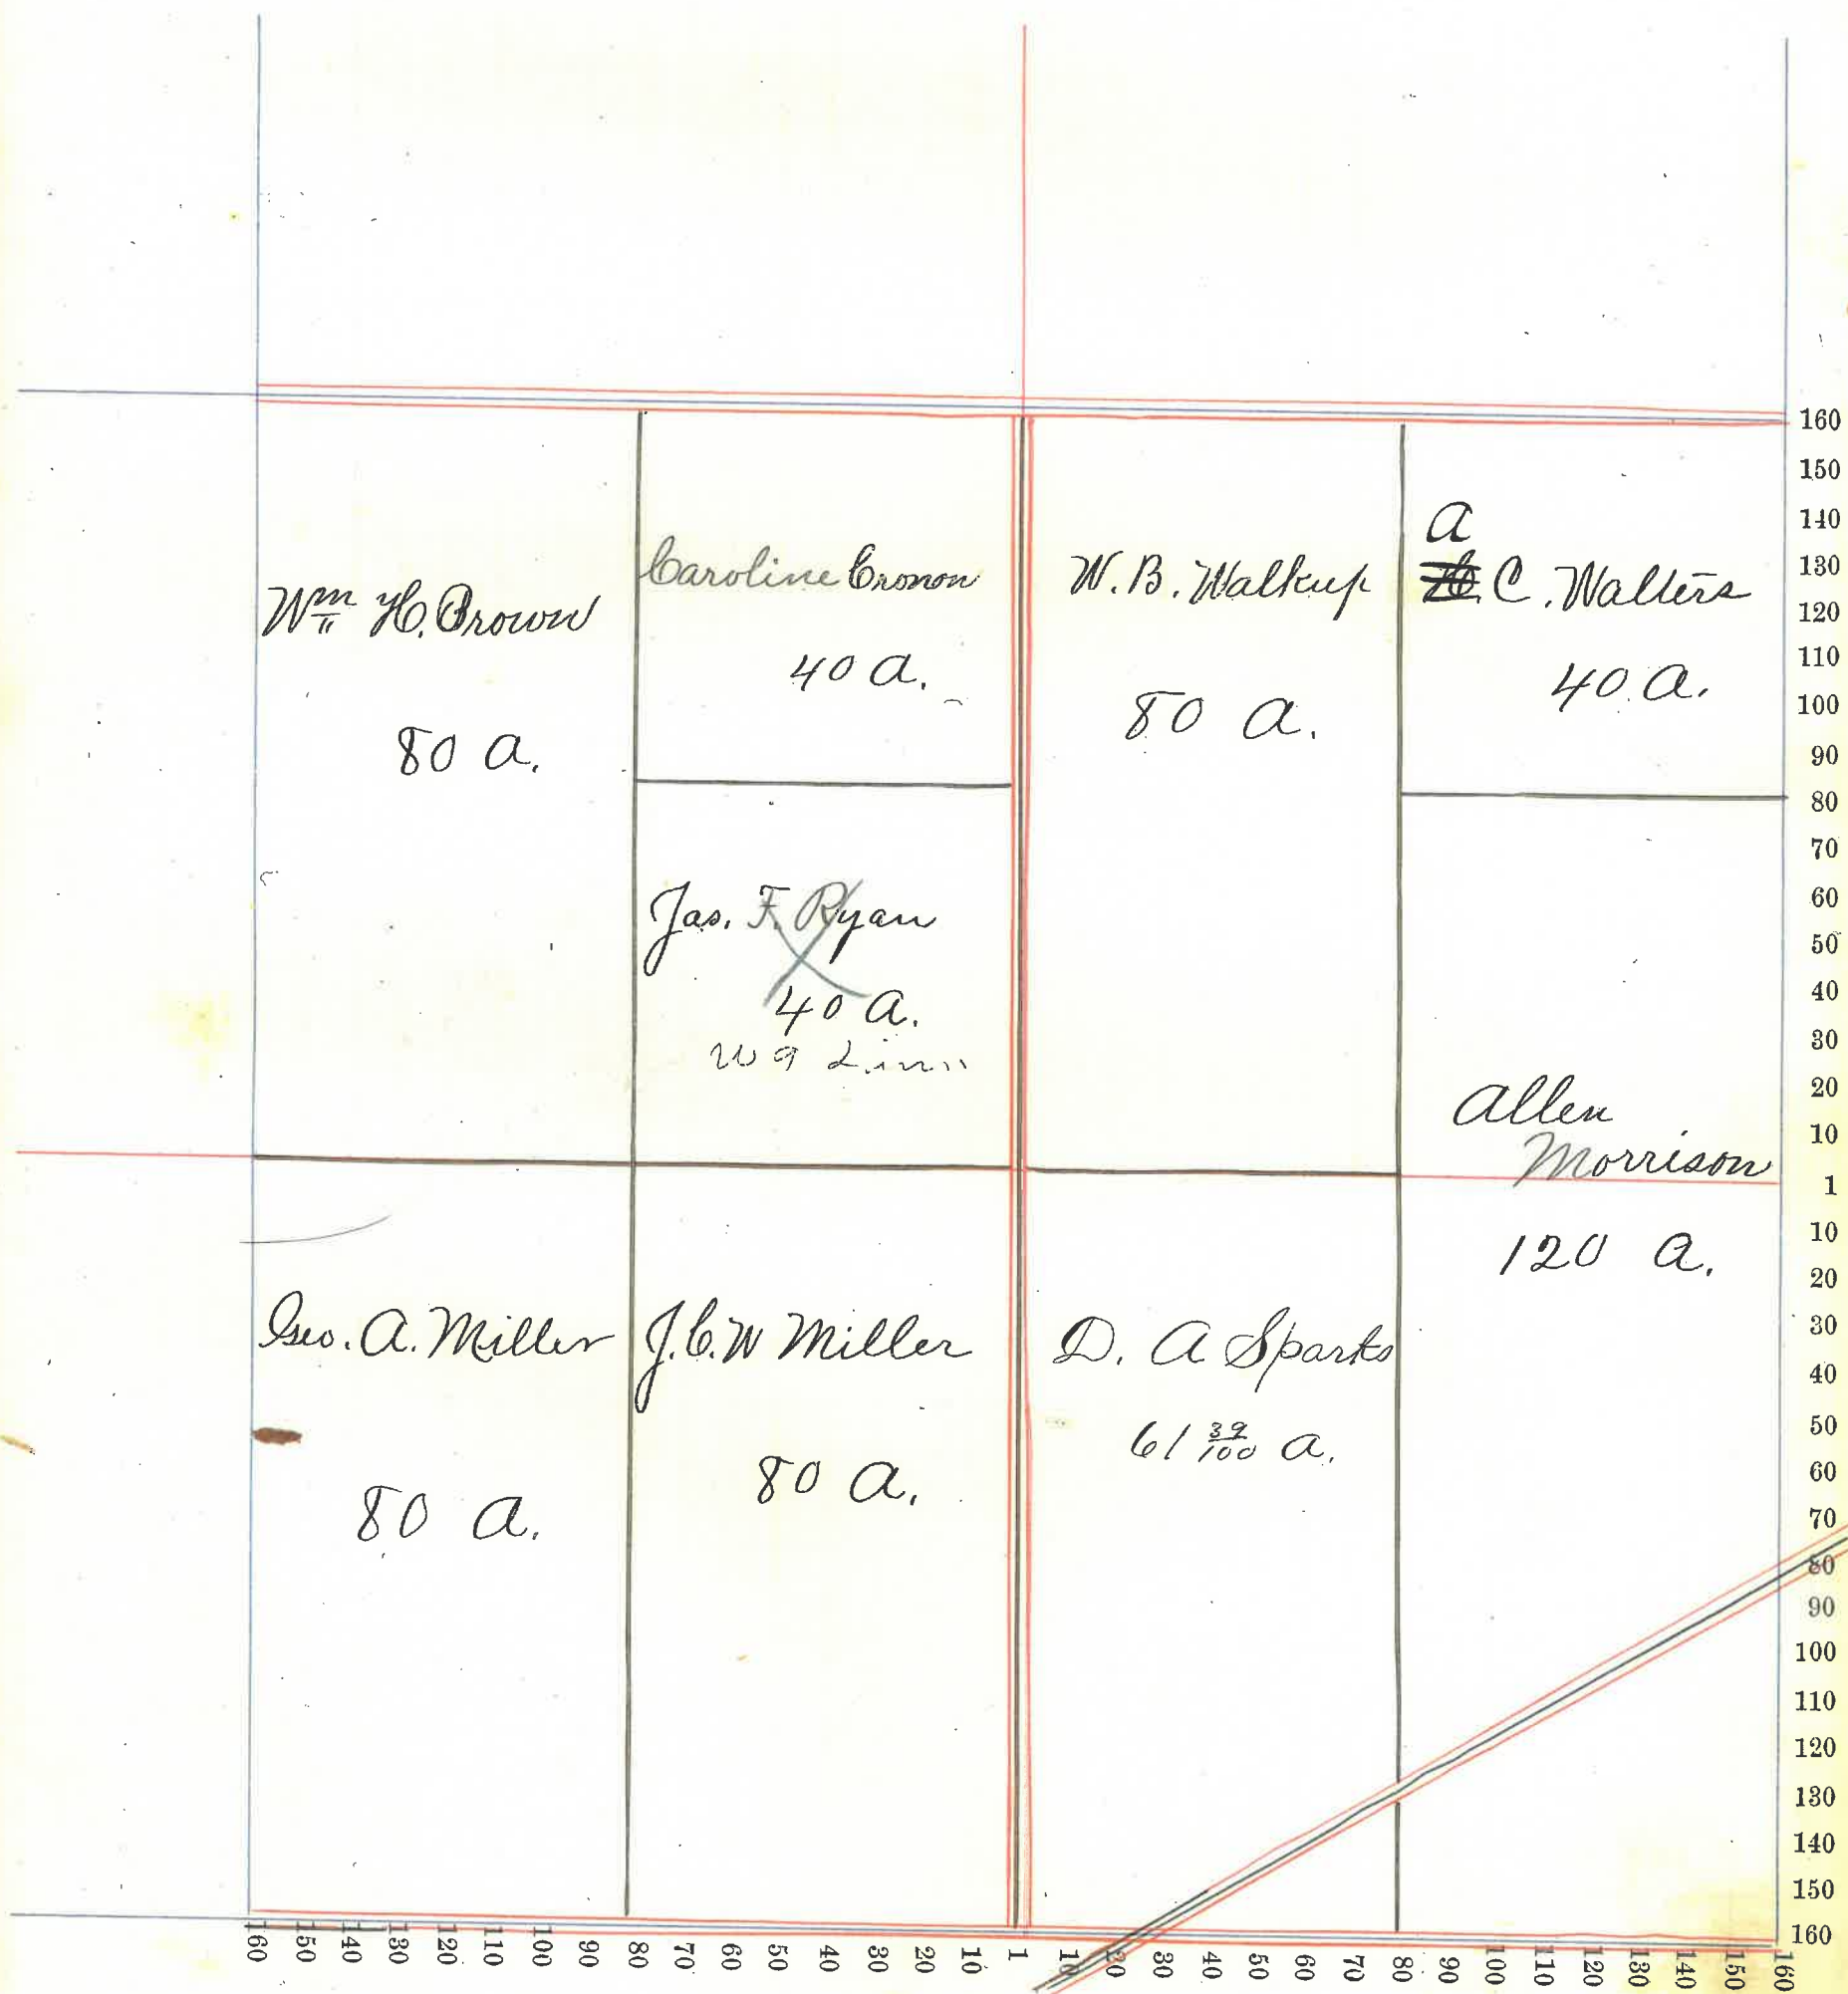 Wm H. Brown
80 a.
Caroline Cronon
40 a.
Jas. F. Ryan
40 a.
W. B. Walkup
80 a.
a
C. Walters
40 a.
Allen
Morrison
120 a.
Geo. A. Miller
80 a.
J. C. W Miller
80 a.
D. A Sparks
61 39/100 a.
160
150
140
130
120
110
100
90
80
70
60
50
40
30
20
10
1
10
20
30
40
50
60
70
80
90
100
110
120
130
140
150
160
160 150 140 130 120 110 100 90 80 70 60 50 40 30 20 10 1 10 20 30 40 50 60 70 80 90 100 110 120 130 140 150 160